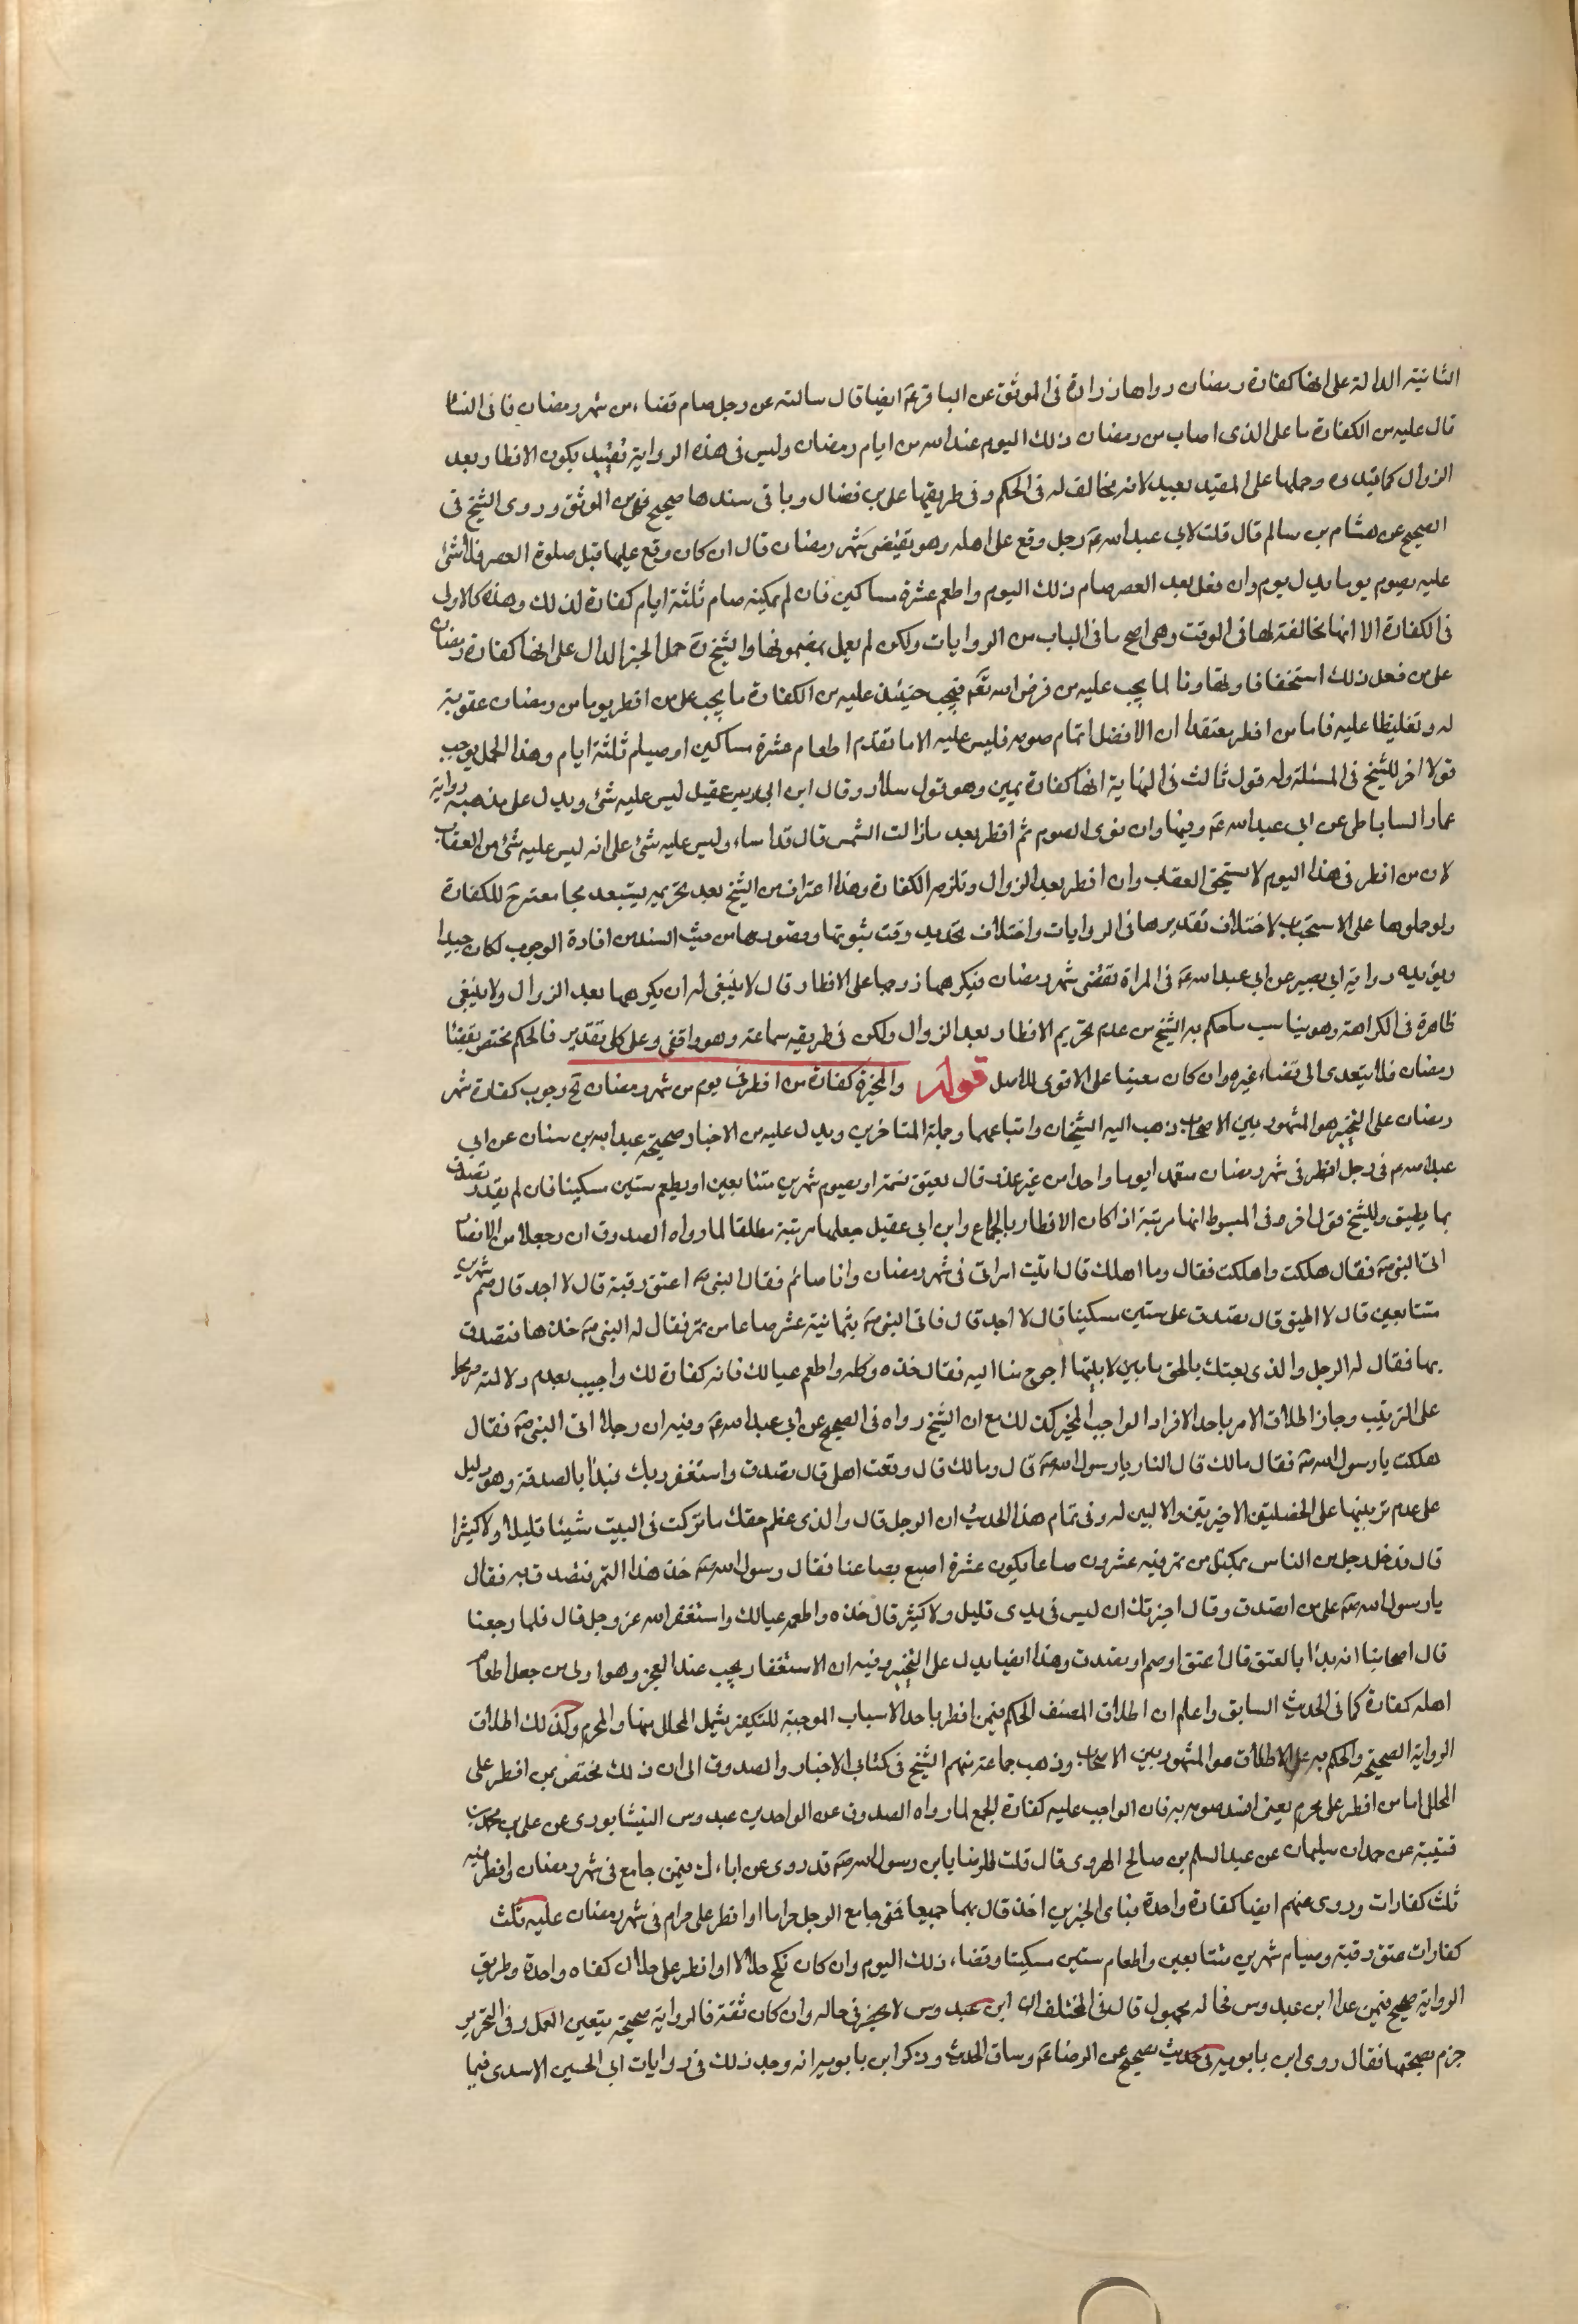 الثانية الدالة على انها كفارة رمضان رواها زرارة فى الموثق عن الباقر عۤ ايضا قال سالته عن رجل صام قضاء من شهر رمضان فاتى النسا
قال عليه من الكفارة ما على الذى اصاب من رمضان ذلك اليوم عند الله من ايام رمضان وليس فى هذه الرواية تقييد بكون الافطار بعد
الزوال كما قيده وحملها على المقيد بعيد لانه مخالف له فى الحكم وفى طريقها على بن فضال وباقى سندها صحيح فهى من الموثق وروى الشيخ فى
الصحيح عن هشام بن سالم قال قلت لابي عبد الله عۤ رجل وقع على اهله وهو يقضى شهر رمضان قال ان كان وقع عليها قبل صلوة العصر فلا شئ
عليه يصوم يوما بدل يوم وان فعل بعد العصر صام ذلك اليوم واطعم عشرة مساكين فان لم يمكنه صام ثلثة ايام كفارة لذلك وهذه كالاولى
فى الكفارة الا انها مخالفة لها فى الوقت وهى اصح ما فى الباب من الروايات ولكن لم يعمل بمضمونها والشيخ ره حمل الخبر الدال على انها كفارة رمضان
على من فعل ذلك استخفافا وتهاونا لما يجب عليه من فرض الله تعۤ فيجب حينئذ عليه من الكفارة ما يجب على من افطر يوما من رمضان عقوبة
له وتغليظا عليه فاما من افطر معتقدا ان الافضل اتمام صومه فليس عليه الا ما تقدم اطعام عشرة مساكين او صيام ثلثة ايام وهذا الحمل يوجب
قولا اخر للشيخ فى المسئلة وله قول ثالث فى النهاية انها كفارة يمين وهو قول سلار وقال ابن ابى عقيل ليس عليه شئ ويدل على مذهبه رواية
عمار الساباطى عن ابي عبد الله عۤ وفيها وان نوى الصوم ثم افطر بعد ما زالت الشمس قال قد اساء وليس عليه شئ على انه ليس عليه شئ من العقاب
لان من افطر فى هذا اليوم لا يستحق العقاب وان افطر بعد الزوال وتلزمه الكفارة وهذا اعتراف من الشيخ بعد تحريمه يستبعد مجامعته للكفارة
ولو حملوها على الاستحباب لاختلاف تقديرها فى الروايات واختلاف تحديد وقت ثبوتها وقصورها من حيث السند من افادة الوجوب لكان جيدا
ويؤيده رواية ابي بصير عن ابي عبد الله عۤ فى المراة تقضى شهر رمضان فيكرهها زوجها على الافطار قال لا ينبغى له ان يكرهها بعد الزوال ولا ينبغى
ظاهرة فى الكراهة وهو يناسب ما حكم به الشيخ من عدم تحريم الافطار بعد الزوال ولكن فى طريقه سماعة وهو واقفى وعلى كل تقدير فالحكم مختص بقضا
رمضان فلا يتعدى الى قضاء غيره وان كان معينا على الاقوى للاصل قوله والمخيرة كفارة من افطر فى يوم من شهر رمضان الخ وجوب كفارة شهر
رمضان على التخيير هو المشهور بين الاصحاب ذهب اليه الشيخان واتباعهما وجلة المتاخرين ويدل عليه من الاخبار صحيحة عبد الله بن سنان عن ابي
عبد الله م فى رجل افطر فى شهر رمضان متعمدا يوما واحدا من غير عذر قال يعتق نسمة او يصوم شهرين متتابعين او يطعم ستين مسكينا فان لم يقدر تصدق
بما يطيق وللشيخ قول اخر فى المبسوط انها مرتبة اذا كان الافطار بالجماع وابن ابي عقيل جعلها مرتبة مطلقا لما رواه الصدوق ان رجلا من الانصا
اتى النبى صۤ فقال هلكت واهلكت فقال وما اهلك قال اتيت امراتى فى شهر رمضان وانا صائم فقال النبى صۤ اعتق رقبة قال لا اجد قال صم شهرين
متتابعين قال لا اطيق قال تصدق على ستين مسكينا قال لا اجد قال فاتى النبى صۤ بثمانية عشر صاعا من تمر فقال له النبى صۤ خذها فتصدق
بها فقال له الرجل والذى بعثك بالحق ما بين لابتيها احوج منا اليه فقال خذه وكله واطعم عيالك فانه كفارة لك واجيب بعدم دلالته صريحا
على الترتيب وجاز اطلاق الامر باحد الافراد الواجب المخير كذلك مع ان الشيخ رواه فى الصحيح عن ابي عبد الله عۤ وفيه ان رجلا اتى النبى صۤ فقال
هلكت يا رسول الله صۤ فقال مالك قال النار يا رسول الله صۤ قال ومالك قال وقعت اهلى قال تصدق واستغفر ربك فبدأ بالصدقة وهو دليل
على عدم ترتيبها على الخصلتين الاخيرتين والا لبين له وفى تمام هذا الحديث ان الرجل قال والذى عظم حقك ما تركت فى البيت شيئا قليلا ولا كثيرا
قال فدخل رجل من الناس بمكتل من تمر فيه عشرون صاعا يكون عشرة اصوع بصاعنا فقال رسول الله صۤ خذ هذا التمر فتصدق به فقال
يا رسول الله صۤ على من اتصدق وقال اخبرتك ان ليس فى يدى قليل ولا كثير قال خذه واطعمه عيالك واستغفر الله عز وجل قال فلما رجعنا
قال اصحابنا انه بدأ بالعتق قال اعتق او صم او تصدق وهذا ايضا يدل على التخيير وفيه ان الاستغفار يجب عند العجز وهو اولى من جعل اطعام
اهله كفارة كما فى الحديث السابق واعلم ان اطلاق المصنف الحكم فيمن افطر باحد الاسباب الموجبة للتكفير يشمل المحلل منها والمحرم وكذلك اطلاق
الرواية الصحيحة والحكم به على الاطلاق هو المشهور بين الاصحاب وذهب جماعة منهم الشيخ فى كتابى الاخبار والصدوق الى ان ذلك مختص بمن افطر على
المحلل اما من افطر على محرم يعنى افسد صومه به فان الواجب عليه كفارة الجمع لما رواه الصدوق عن الواحد بن عبدوس النيشابورى عن على بن محمد بن
قتيبة عن حمدان سليمان عن عبد السلم بن صالح الهروى قال قلت للرضا يابن رسول الله صۤ قد روى عن اباءك فيمن جامع فى شهر رمضان وافطر فيه
ثلث كفارات وروى عنهم ايضا كفارة واحدة فباى الخبرين اخذ قال بهما جميعا متى جامع الرجل حراما او افطر على حرام فى شهر رمضان عليه ثلث
كفارات عتق رقبة وصيام شهرين متتابعين واطعام ستين مسكينا وقضاء ذلك اليوم وان كان نكح حلالا او افطر على حلال كفاه واحدة وطريق
الرواية صحيح فيمن عدا ابن عبدوس فحاله مجهول قال فى المختلف ان ابن عبدوس لا يحضرنى حاله وان كان ثقة فالرواية صحيحة يتعين العمل وفى التحرير
جزم بصحتها فقال روى ابن بابويه فى حديث صحيح عن الرضا عۤ وساق الحديث وذكر ابن بابويه انه وجد ذلك فى روايات ابي الحسين الاسدى فيما